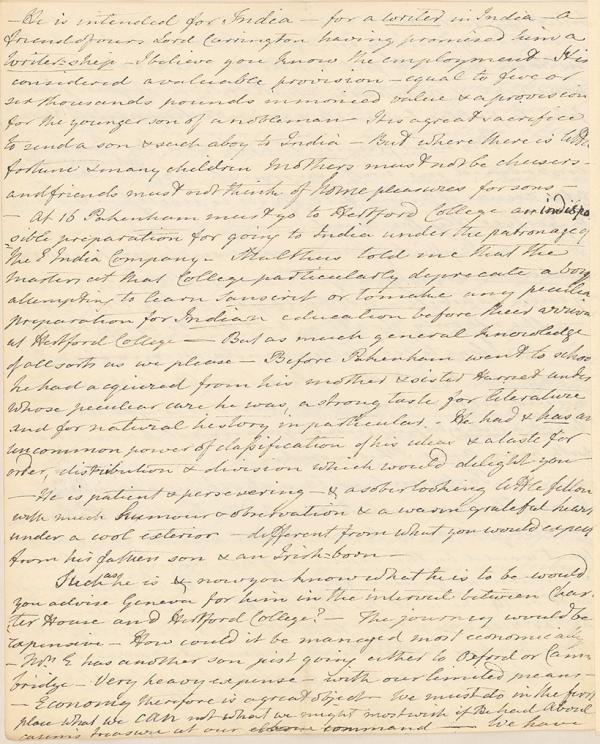 – He is intended for India – for a writer in India – A
friend of ours Lord Carrington having promised him a
Writer-ship – I believe you know the employment – It is
considered a valuable provision – equal to five or
six thousands pounds in monied value & a provision
for the younger son of a nobleman – It is a great sacrifice
to send a son & such a boy to India – But where there is little
fortune & many children Mothers must not be chusers –
and friends must not think of home pleasures for sons –
– At 16 Pakenham must go to Hertford College an indispen
sible preparation for going to India under the patronage of
the E India Company – Malthus told me that the
masters at that College particularly deprecate a boy
attempting to learn Sanscrit or to make any peculiar
preparation for Indian education before their arrival
at Hertford College – But as much general knowledge
of all sorts as we please – Before Pakenham went to school
he had acquired from his mother & sister Harriet under
whose peculiar care he was, a strong taste for literature
and for natural history in particular. – He had & has an
uncommon power of classification of his ideas & a taste for
order, distribution & division which would delight you –
– He is patient & persevering – & a sober looking little fellow
with much humour & observation & a warm grateful heart
under a cool exterior – different from what you would expect
from his fathers son & an Irish-born –
Such as he is & now you know what he is to be would
you advise Geneva for him in the interval between Char-
ter House and Hertford College? – The journey would be
expensive – How could it be managed most economically
– Mrs E has another son just going either to Oxford or Cam
bridge – Very heavy expense – with our limited means –
– Economy therefore is a great object – We must do in the first
place what we can not what we might most wish if we had Aboul
casems treasure at our command – We have